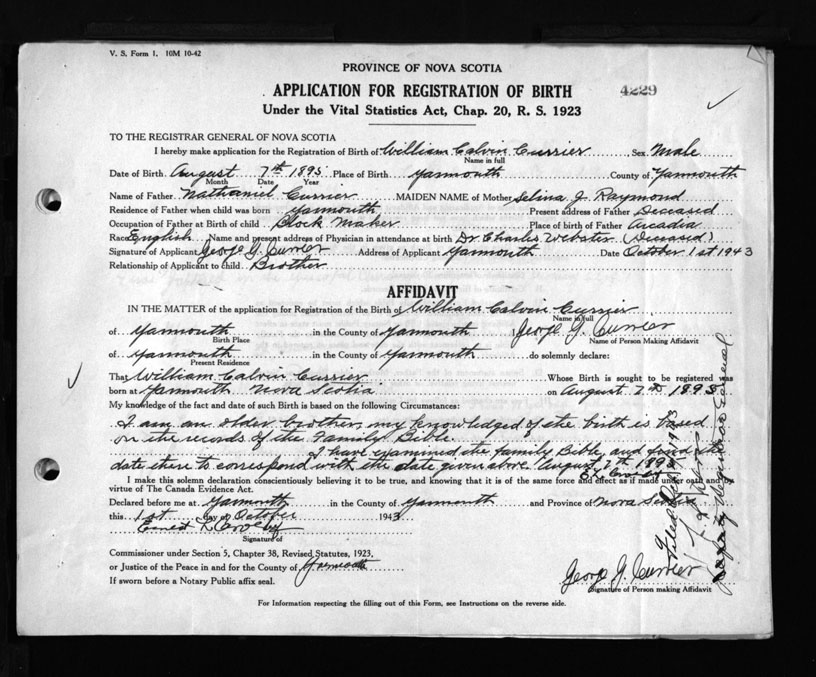 V. S. Form 1. 10M 10-42
PROVINCE OF NOVA SCOTIA
APPLICATION FOR REGISTRATION OF BIRTH
4229
Under the Vital Statistics Act, Chap. 20, R. S. 1923
TO THE REGISTRAR GENERAL OF NOVA SCOTIA
I hereby make application for the Registration of Birth of William Calvin Currier, Sex Male
Name in full
Date of Birth August 7th 1895 Place of Birth Yarmouth County of Yarmouth
Month Date Year
Name of Father Nathaniel Currier MAIDEN NAME of Mother Selina J. Raymond
Residence of Father when child was born Yarmouth Present address of Father Deceased
Occupation of Father at Birth of child Block Maker Place of birth of Father Arcadia
Race English Name and present address of Physician in attendance at birth Dr. Charles Webster (Deceased)
Signature of Applicant George G. Currier Address of Applicant Yarmouth Date October 1st 1943
Relationship of Applicant to child Brother
AFFIDAVIT
IN THE MATTER of the application for Registration of the Birth of William Calvin Currier
Name in full
of Yarmouth in the County of Yarmouth I George G. Currier
Birth Place Name of Person Making Affidavit
of Yarmouth in the County of Yarmouth do solemnly declare:
Present Residence
That William Calvin Currier Whose Birth is sought to be registered was
born at Yarmouth Nova Scotia on August 7th 1895
My knowledge of the fact and date of such Birth is based on the following Circumstances:
I am an older brother, my knowledged of the birth is based
on the records of the Family Bible.
I have examined the family Bible, and find the
date there to correspond with the date given above August 7th 1895
I make this solemn declaration conscientiously believing it to be true, and knowing that it is of the same force and effect as if made under oath and by
virtue of The Canada Evidence Act.
Declared before me at Yarmouth in the County of Yarmouth and Province of Nova Scotia
this 1st day of October 1943
Signature of
Commissioner under Section 5, Chapter 38, Revised Statutes, 1923,
or Justice of the Peace in and for the County of Yarmouth
If sworn before a Notary Public affix seal.
George G. Currier
Signature of Person making Affidavit
For Information respecting the filling out of this Form, see Instructions on the reverse side.
Deputy Registrar General